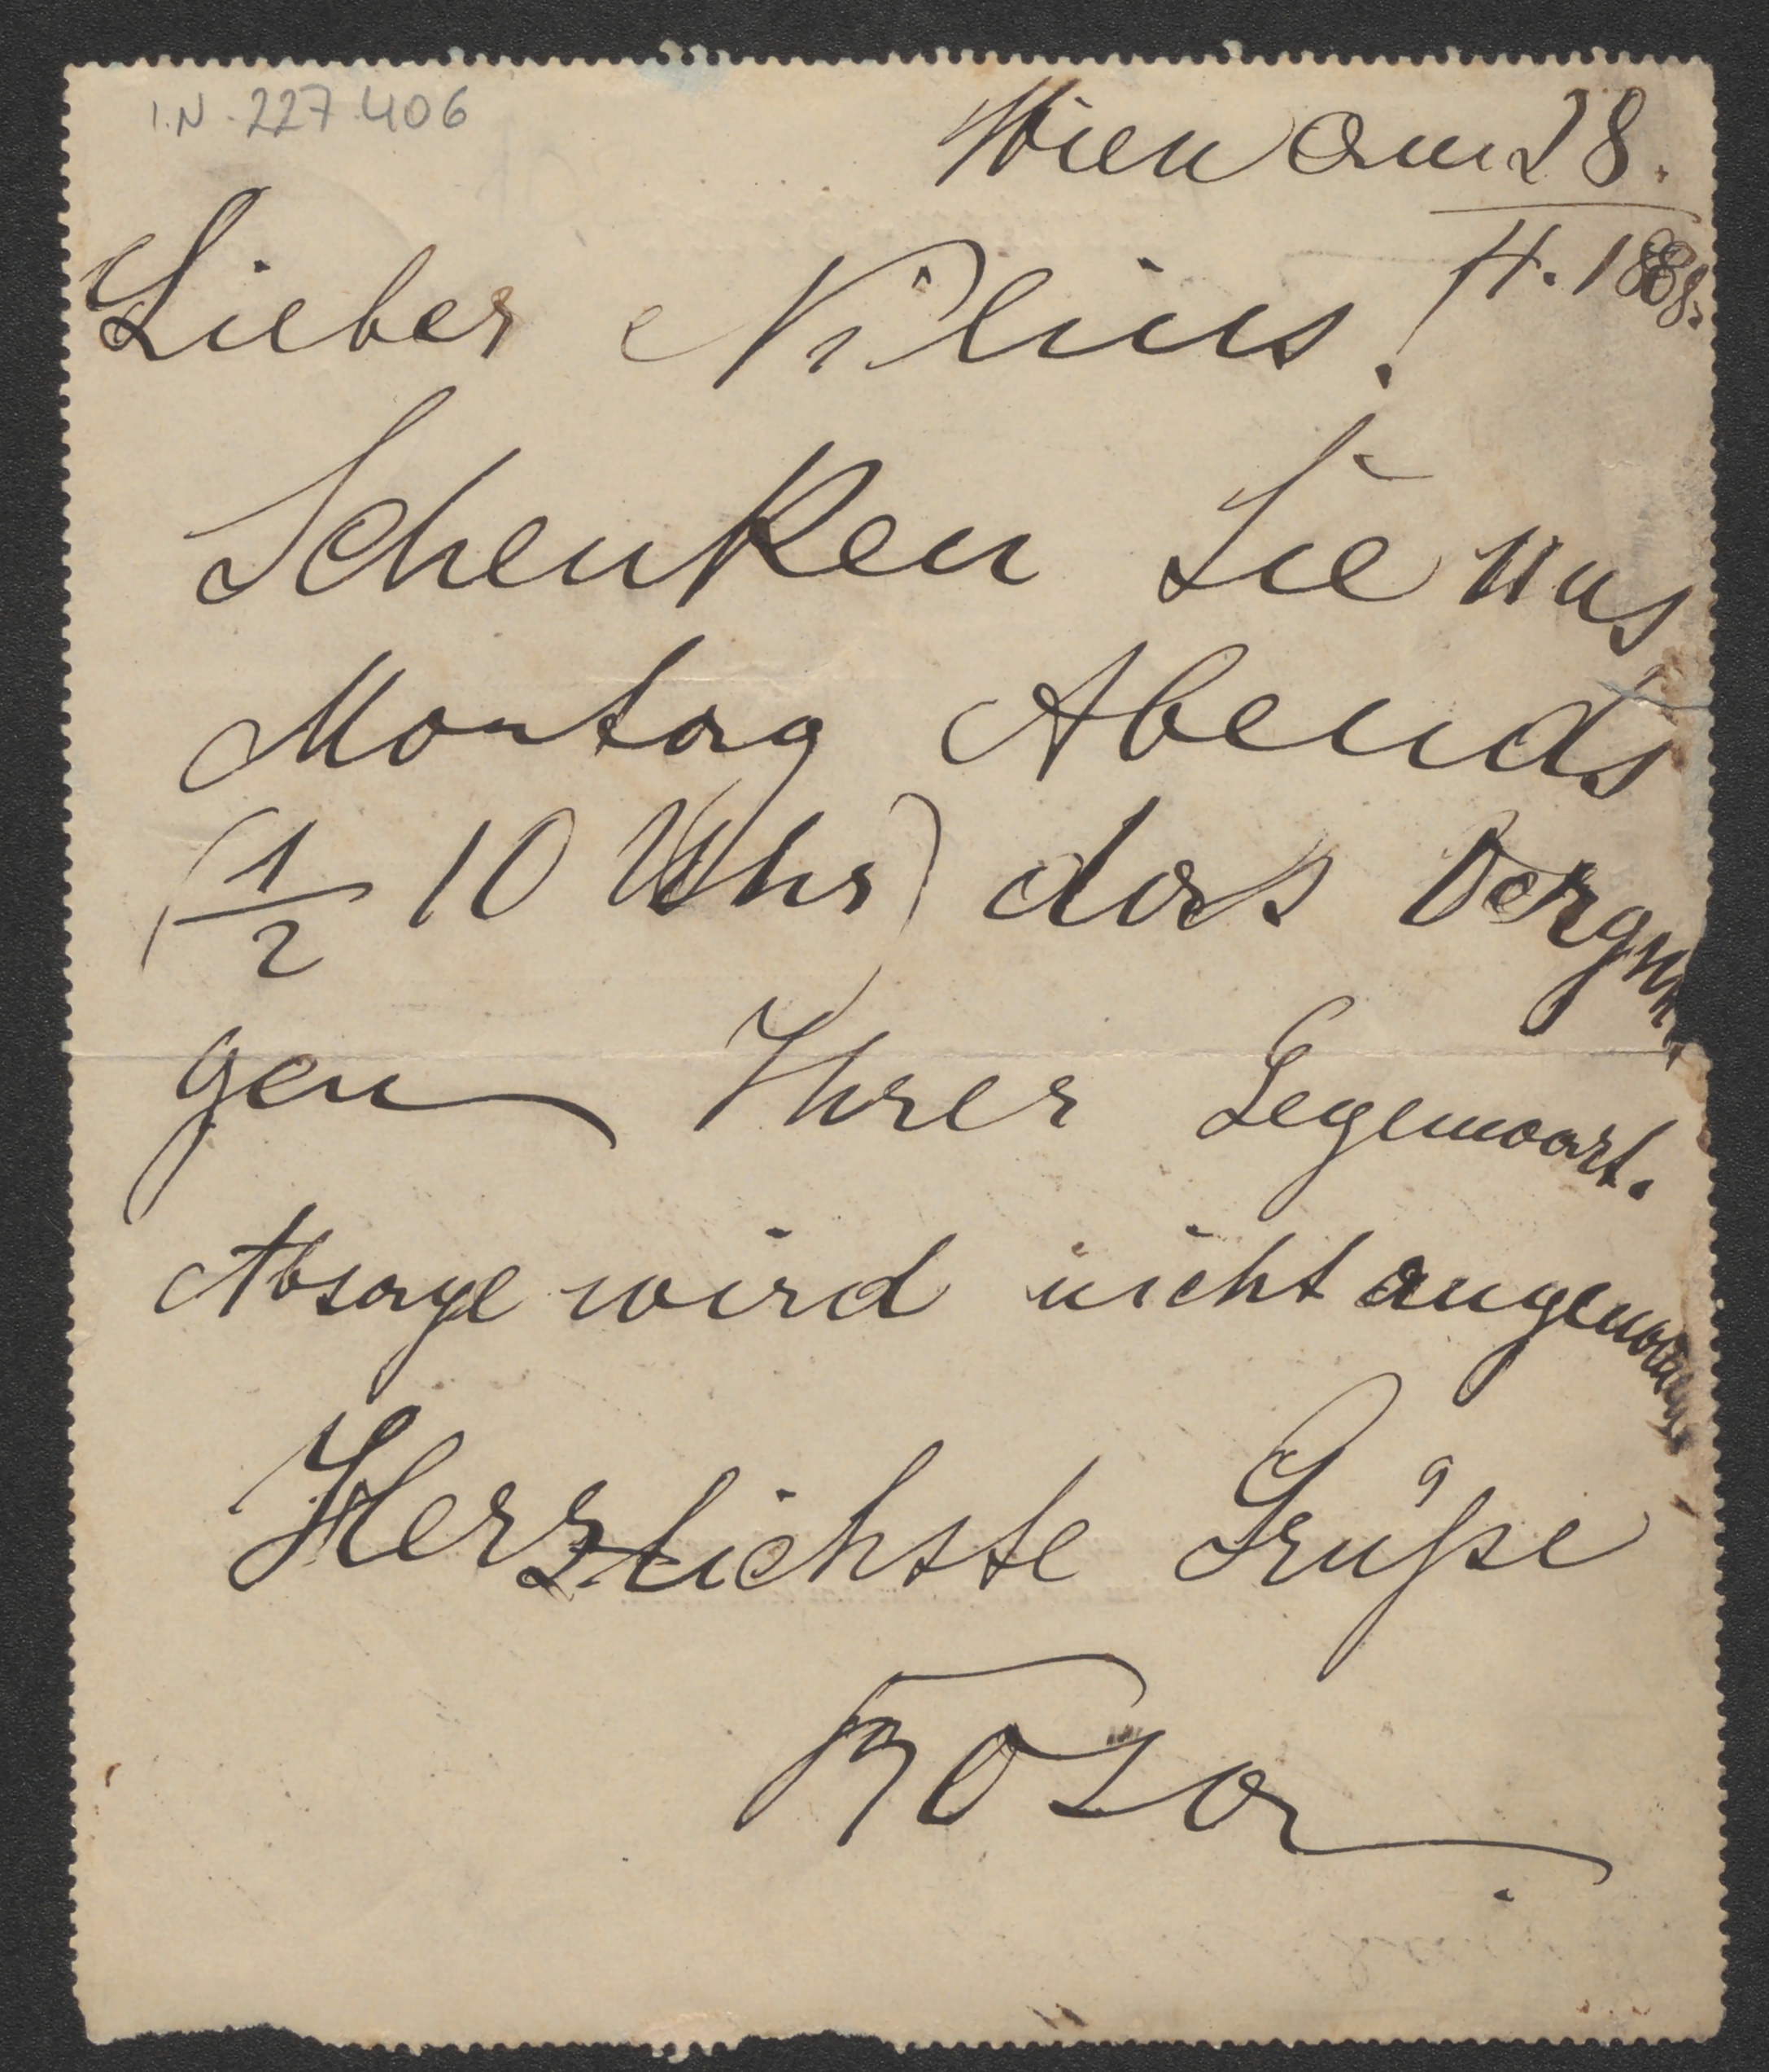 I.N. 227.406
Wien am 28.
4. 1888.
Lieber Nilius!
Schenken Sie uns
Montag Abends
(1/2 10 Uhr) das Vergnü-
gen Ihrer Gegenwart.
Absage wird nicht angenommen
Herzlichste Grüße
Rosa